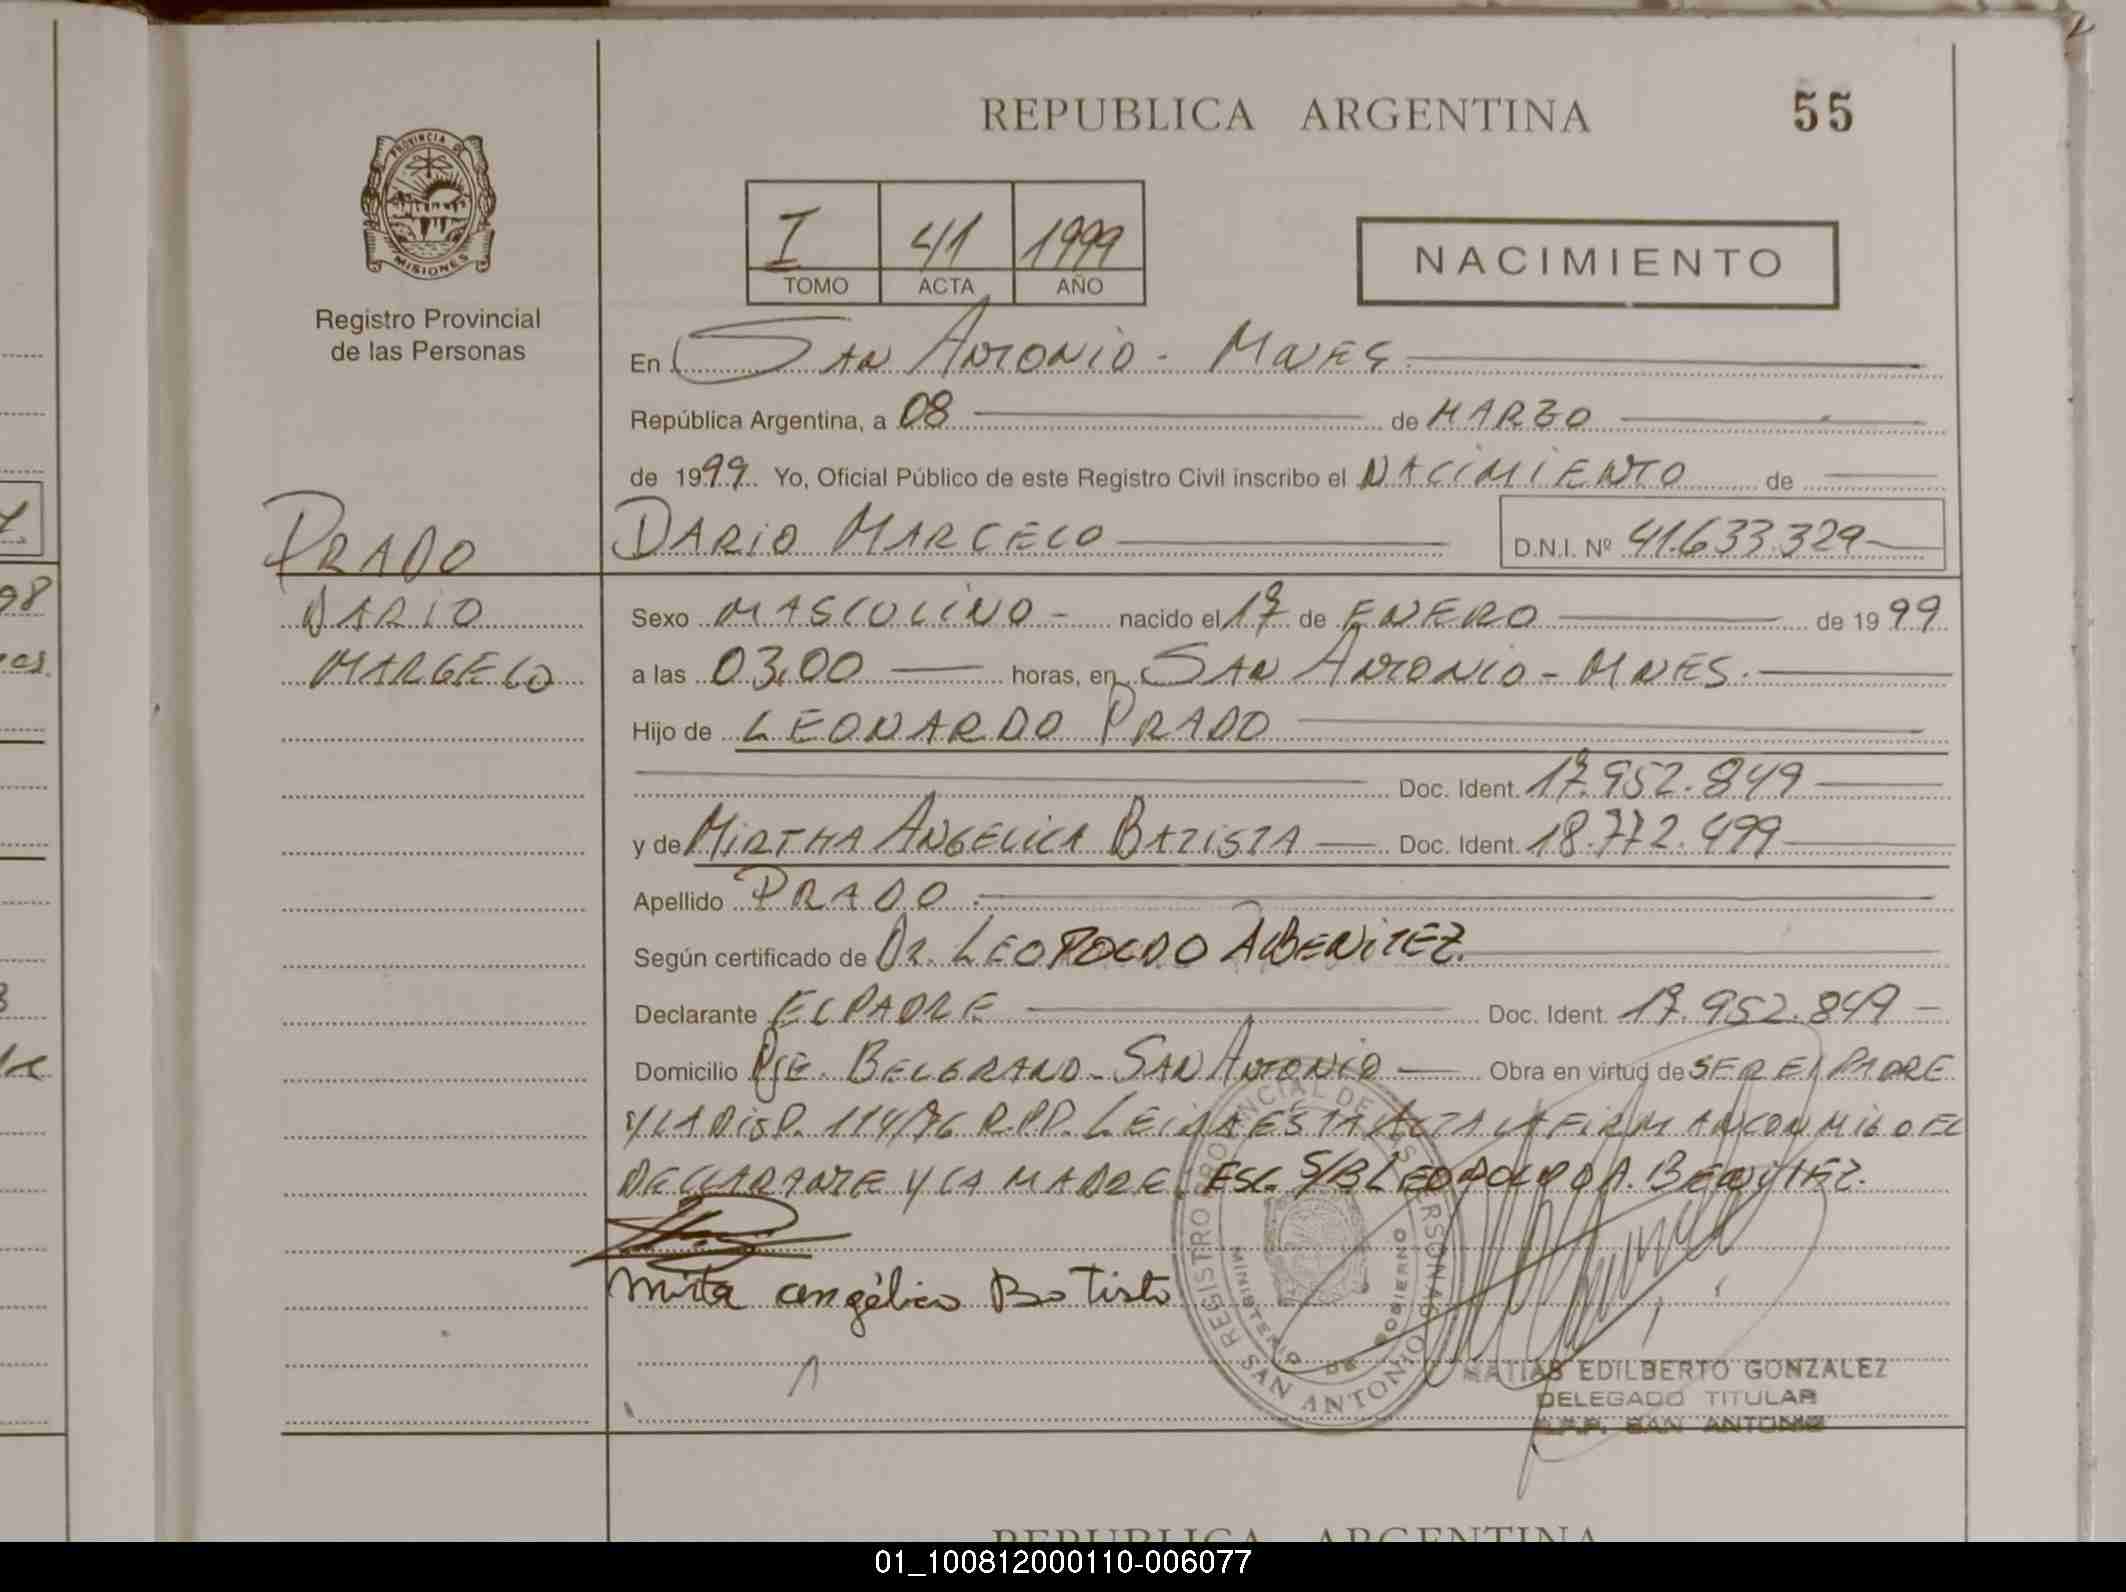 REPUBLICA ARGENTINA
55
PROVINCIA DE
MISIONES
Registro Provincial
de las Personas
I 41 1999
TOMO ACTA AÑO
NACIMIENTO
En SAN ANTONIO - MNES
República Argentina, a 08 de MARZO
de 1999. Yo, Oficial Público de este Registro Civil inscribo el NACIMIENTO de
PRADO
DARIO MARCELO
D.N.I. Nº 41.633.329
DARIO
MARCELO
Sexo MASCULINO - nacido el 17 de ENERO de 1999
a las 03,00 horas, en SAN ANTONIO - MNES.
Hijo de LEONARDO PRADO
Doc. Ident. 17.952.849
y de MIRTHA ANGELICA BATISTA Doc. Ident. 18.772.499
Apellido PRADO.
Según certificado de DR. LEOPOLDO A BENITEZ.
Declarante EL PADRE Doc. Ident. 17.952.849 -
Domicilio PJE. BELGRANO - SAN ANTONIO Obra en virtud de SER EL PADRE
Y LA DISP. 114/96 R.P.P. LEIDA ESTA ACTA LA FIRMAN CONMIGO EL
DECLARANTE Y LA MADRE. ESC. S/B LEOPOLDO A. BENITEZ.
Mirta angélica Batista
REGISTRO PROVINCIAL DE LAS PERSONAS
MINISTERIO DE GOBIERNO
SAN ANTONIO
MATIAS EDILBERTO GONZALEZ
DELEGADO TITULAR
R.P.P. SAN ANTONIO
REPUBLICA ARGENTINA
01_100812000110-006077